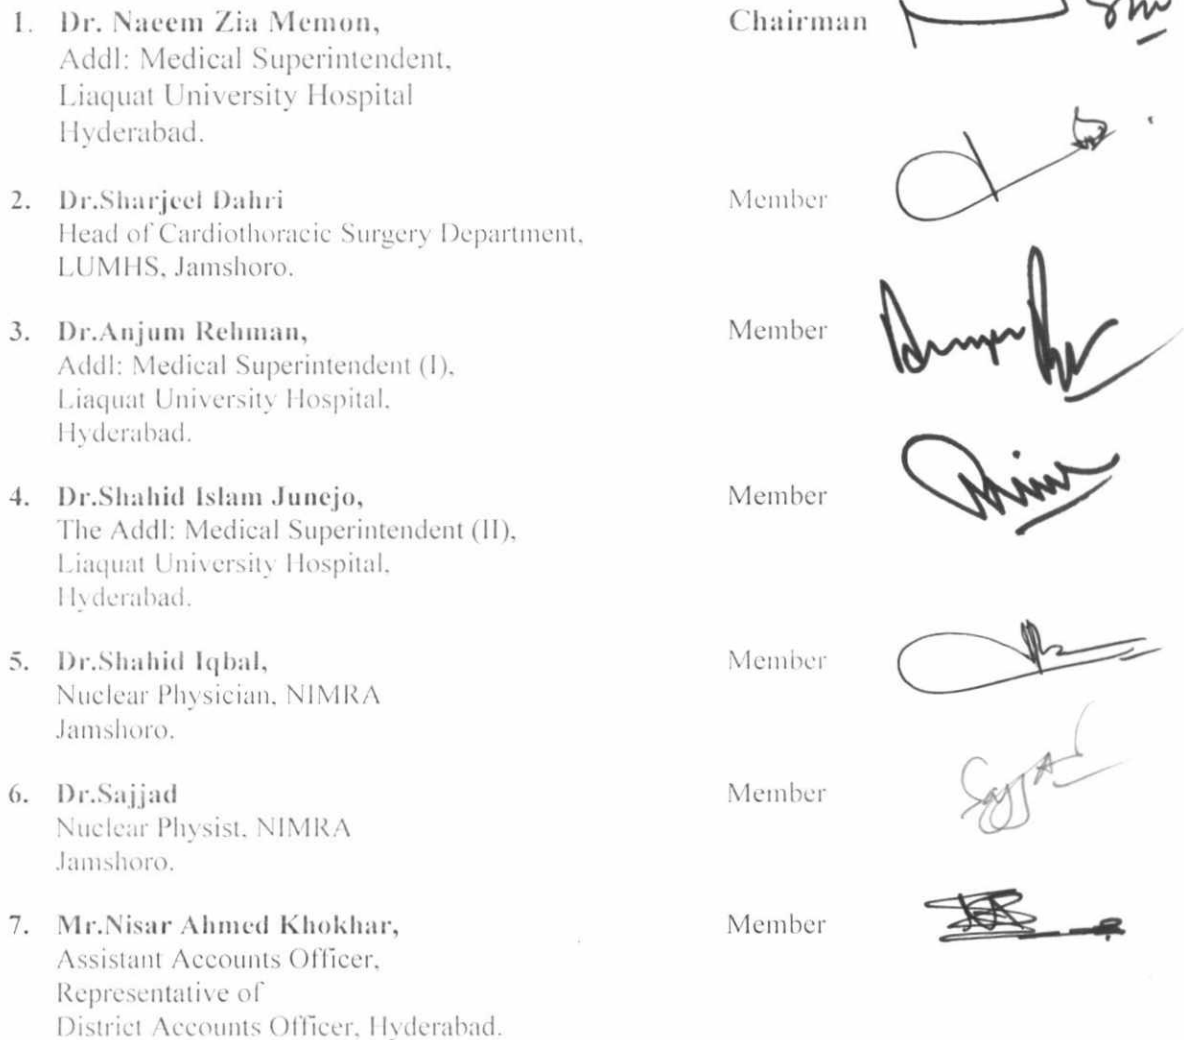 1. Dr. Naeem Zia Memon, Chairman
Addl: Medical Superintendent,
Liaquat University Hospital
Hyderabad.
2. Dr.Sharjeel Dahri Member
Head of Cardiothoracic Surgery Department,
LUMHS, Jamshoro.
3. Dr.Anjum Rehman, Member
Addl: Medical Superintendent (I),
Liaquat University Hospital,
Hyderabad.
4. Dr.Shahid Islam Junejo, Member
The Addl: Medical Superintendent (II),
Liaquat University Hospital,
Hyderabad.
5. Dr.Shahid Iqbal, Member
Nuclear Physician, NIMRA
Jamshoro.
6. Dr.Sajjad Member
Nuclear Physist, NIMRA
Jamshoro.
7. Mr.Nisar Ahmed Khokhar, Member
Assistant Accounts Officer,
Representative of
District Accounts Officer, Hyderabad.